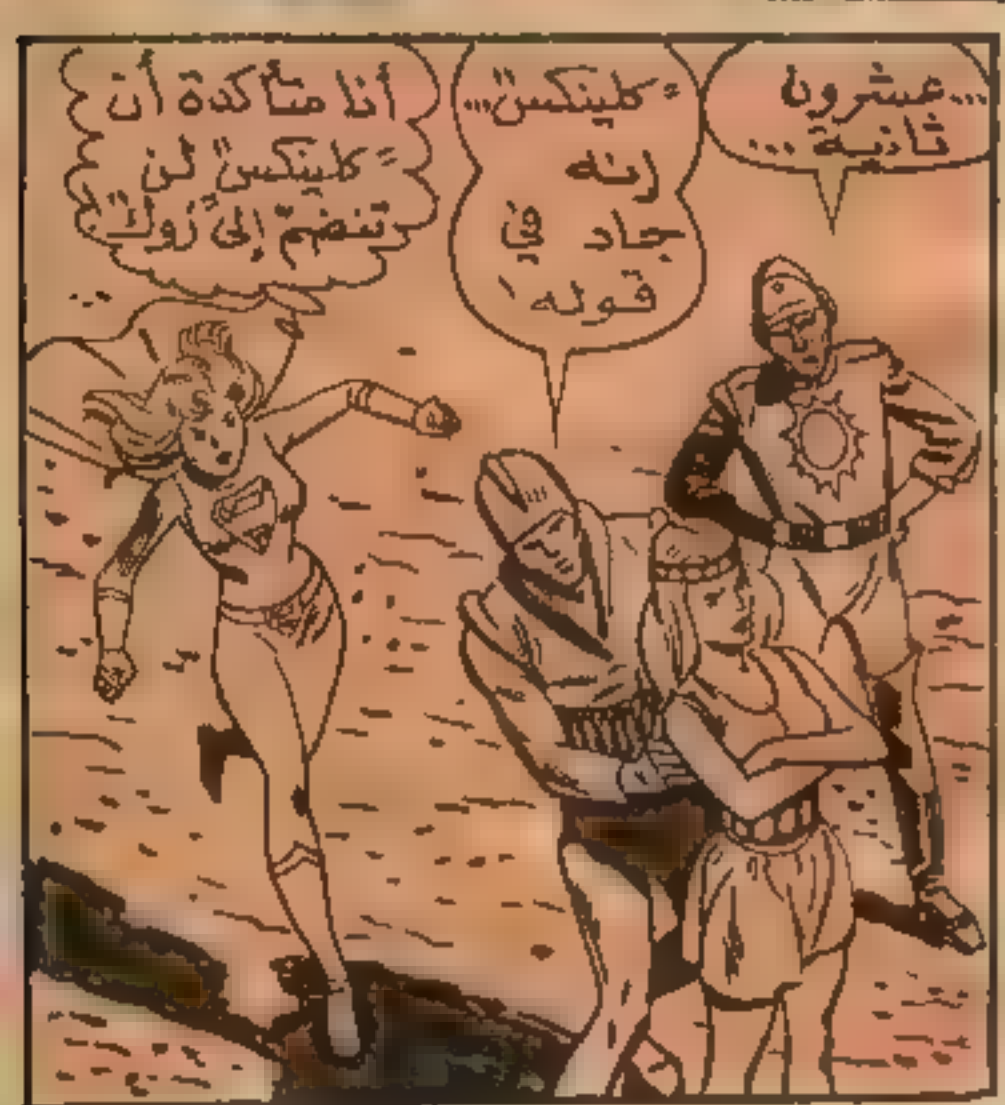 ...عشرون
ثانية...
"كلينكس"...
إنه
جاد في
قوله!
أنا متأكدة أن
"كلينكس" لن
تنضمّ إلى "زوك"